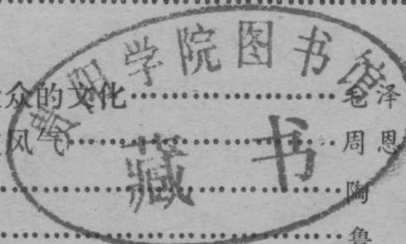 贵阳学院图书馆
藏书
众的文化……毛泽
风气……周恩
……陶
……鲁